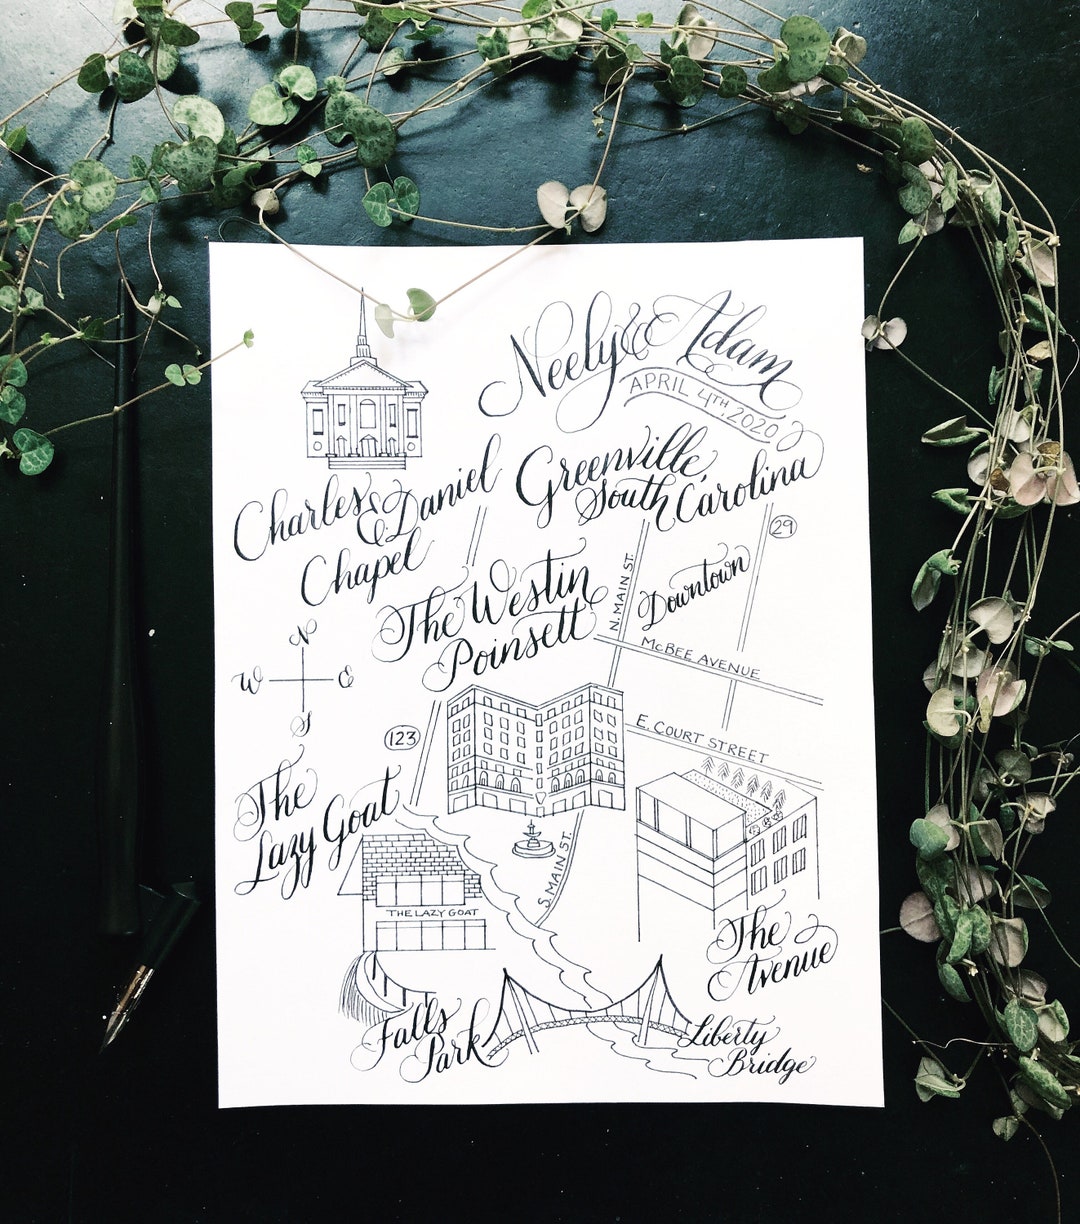 Neely & Adam
APRIL 4TH, 2020
Greenville
South Carolina
Charles & Daniel
Chapel
29
The Westin
Poinsett
N. MAIN ST.
Downtown
McBEE AVENUE
N
W E
S
123
E. COURT STREET
The
Lazy Goat
THE LAZY GOAT
S. MAIN ST.
The
Avenue
Falls
Park
Liberty
Bridge